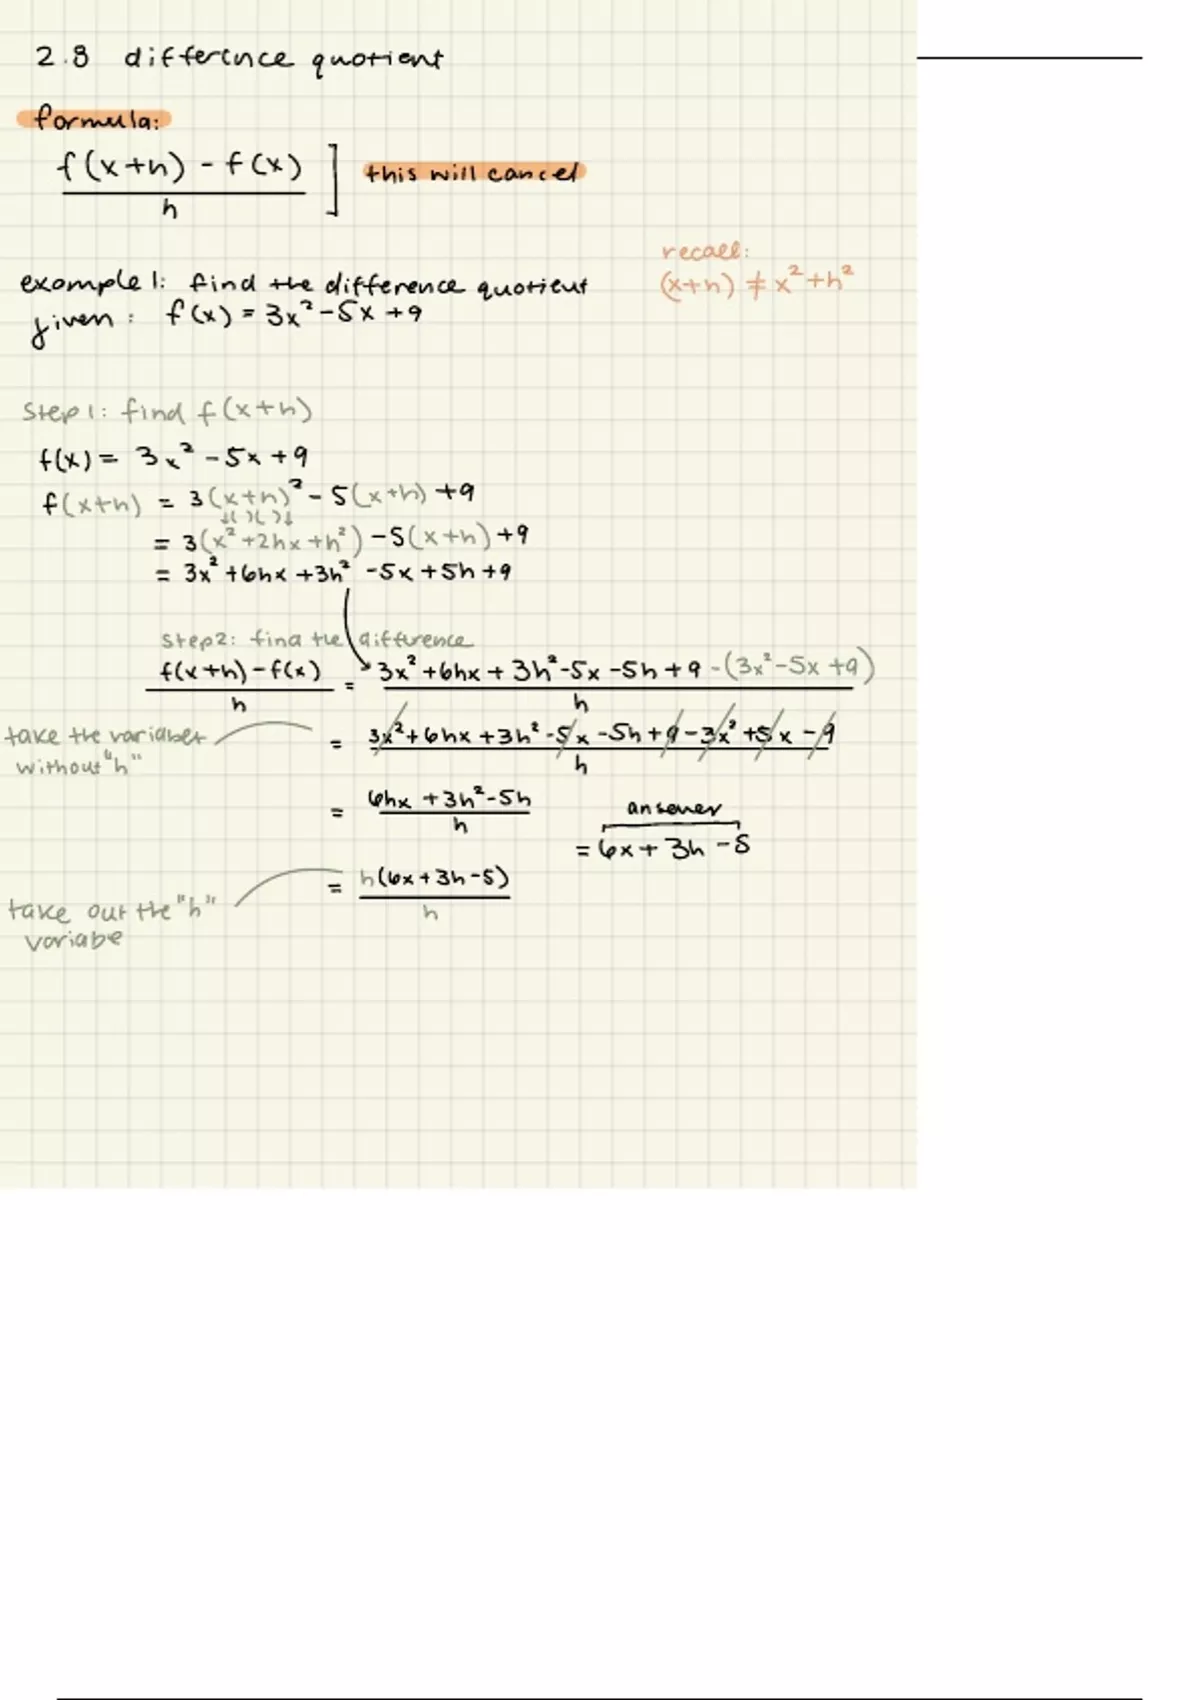 2.8 difference quotient
formula:
f(x+h) - f(x) / h ] this will cancel
recall:
(x+h) ≠ x² + h²
example 1: find the difference quotient
given: f(x) = 3x² - 5x + 9
Step 1: find f(x+h)
f(x) = 3x² - 5x + 9
f(x+h) = 3(x+h)² - 5(x+h) + 9
↓( )( )↓
= 3(x² + 2hx + h²) - 5(x+h) + 9
= 3x² + 6hx + 3h² - 5x + 5h + 9
Step 2: find the difference
f(x+h) - f(x) / h = 3x² + 6hx + 3h² - 5x - 5h + 9 - (3x² - 5x + 9) / h
take the variables
without "h"
= 3x² + 6hx + 3h² - 5x - 5h + 9 - 3x² + 5x - 9 / h
= 6hx + 3h² - 5h / h
answer
= 6x + 3h - 5
= h(6x + 3h - 5) / h
take out the "h"
variabe